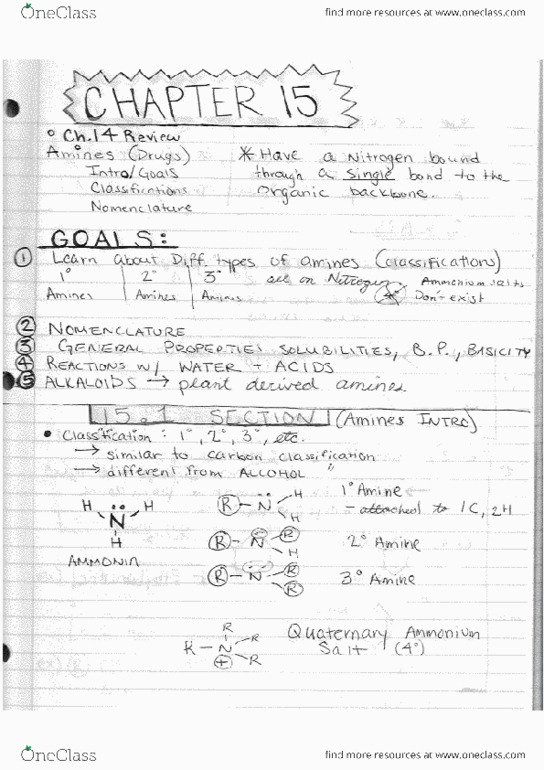 OneClass
find more resources at www.oneclass.com
CHAPTER 15
Ch.14 Review
Amines (Drugs)
Intro/Goals
Classifications
Nomenclature
* Have a Nitrogen bound
through a single bond to the
Organic backbone.
GOALS:
① Learn About Diff. types of amines (classifications)
1° Amines | 2° Amines | 3° Amines
all on Nitrogen
Ammonium salts
Don't exist
② NOMENCLATURE
③ GENERAL PROPERTIES SOLUBILITIES, B.P., BASICITY
④ REACTIONS w/ WATER + ACIDS
⑤ ALKALOIDS → plant derived amines.
15.1 SECTION (Amines INTRO)
• Classification: 1°, 2°, 3°, etc.
→ similar to carbon classification
→ different from ALCOHOL "
H H
N
H
AMMONIA
R - N H
H
1° Amine
- attached to 1C, 2H
R - N R
H
2° Amine
R - N R
R
3° Amine
R
R - N R
+ R
Quaternary Ammonium
Salt (4°)
OneClass
find more resources at www.oneclass.com